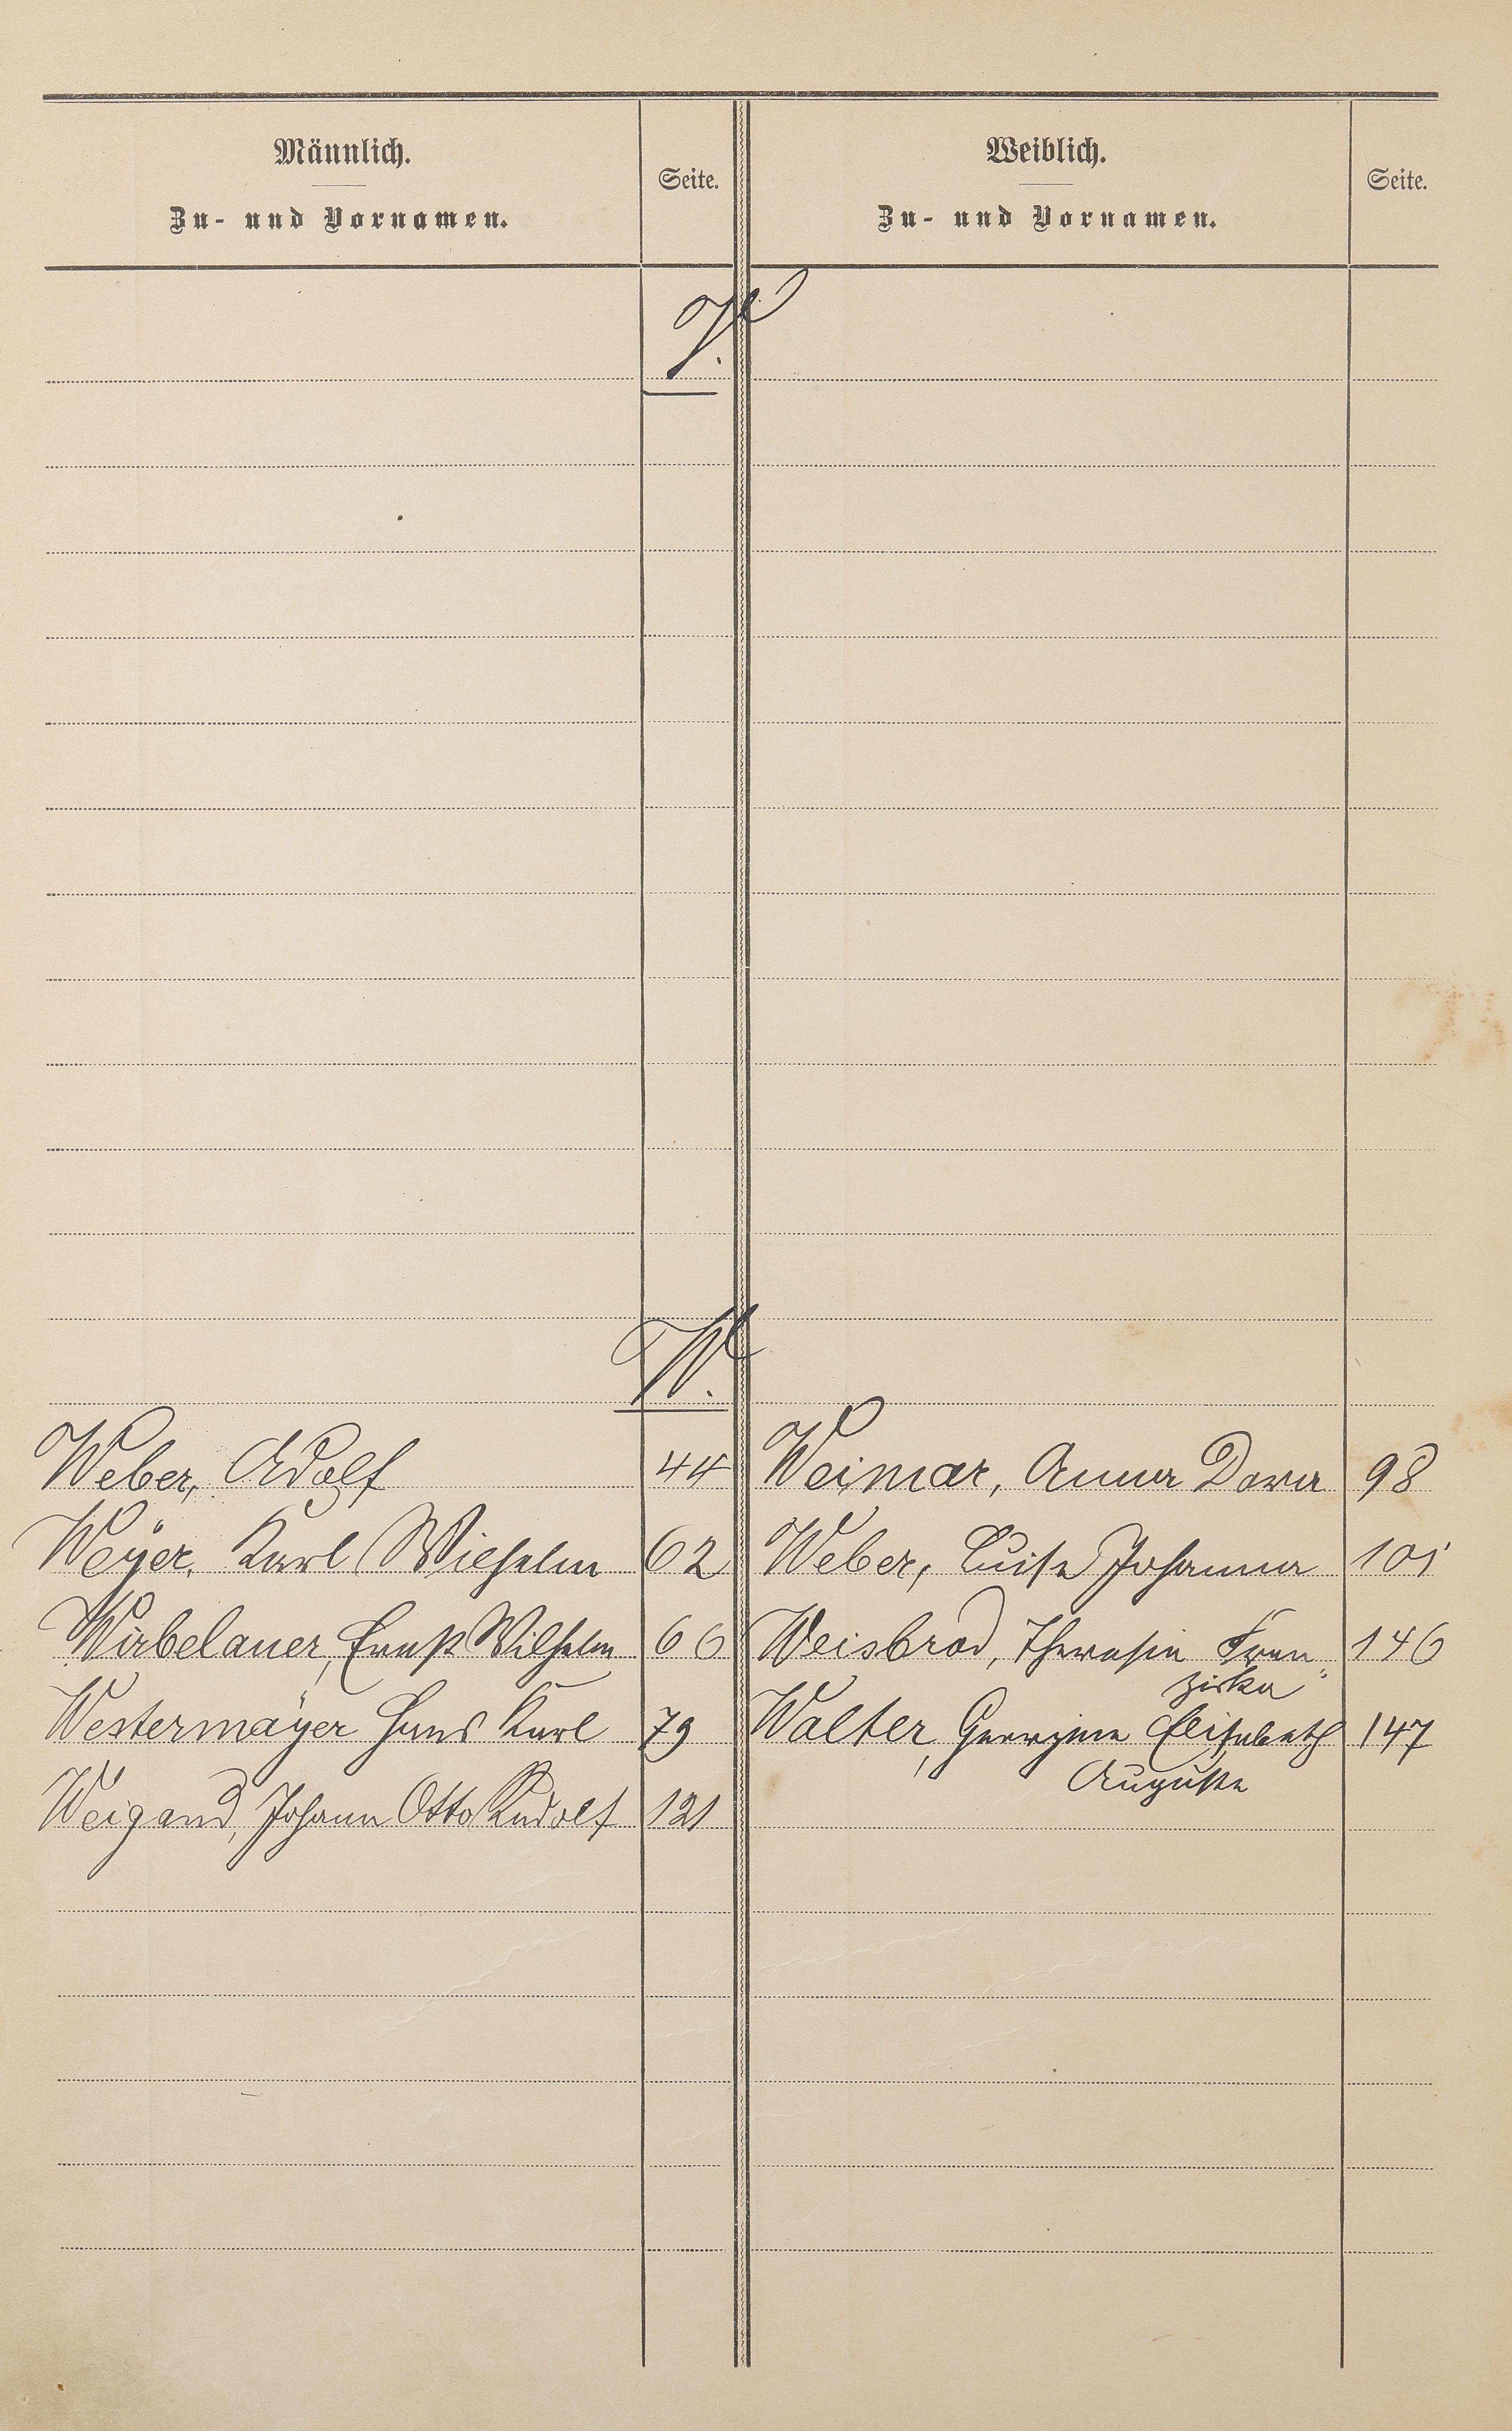 Männlich.
Zu- und Vornamen.
Seite.
Weiblich.
Zu- und Vornamen.
Seite.
V.
W.
Weber, Adolf 44 Weimar, Anna Dora 98
Weÿer, Karl Wilhelm 62 Weber, Luise Johanna 101
Wirbelauer, Ernst Wilhelm 66 Weisbrod, Theresia Fran„ 146
ziska
Westermaÿer Hans Karl 79 Walter, Georgine Elisabeth 147
Auguste
Weigand, Johann Otto Rudolf 121